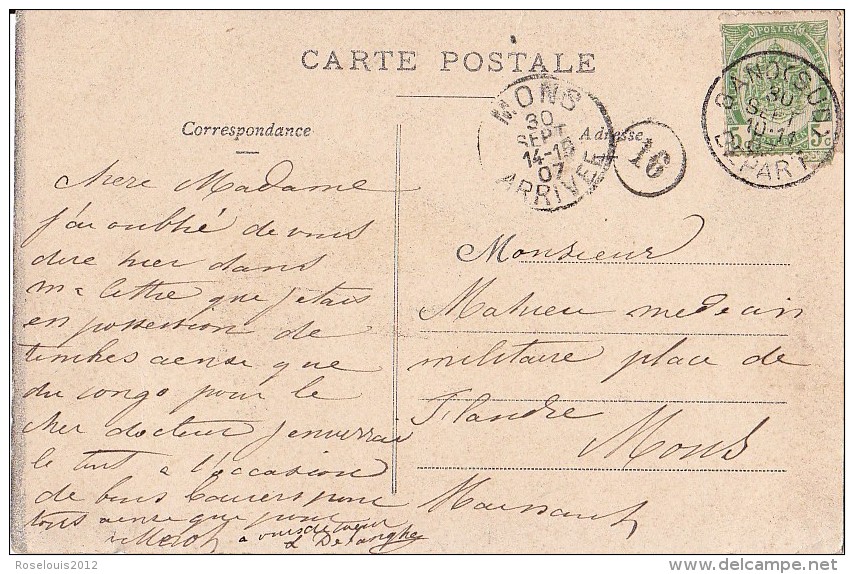 CARTE POSTALE
Correspondance
Adresse
POSTES
5 5
MONS
30
SEPT
14-15
07
ARRIVEE
16
30
SEPT
10-11
DEPART
chere Madame
j'ai oublié de vous
dire hier dans
ma lettre que j'etais
en possession de
timbres aense que
du congo pour le
cher docteur j'enverrai
le tout a l'occasion
de bons baisers pour
tous aense que pour
a vous de coeur
Monsieur
Mahieu medecin
militaire place de
Flandre
Mons
Roselouis2012
delcampe.net